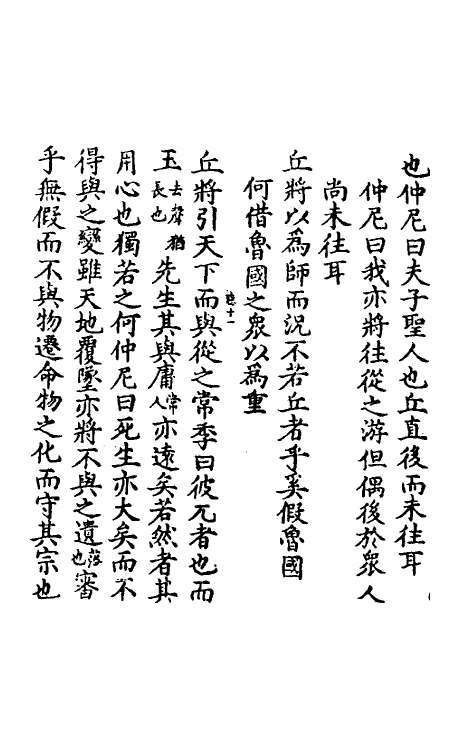 也仲尼曰夫子聖人也丘直後而未往耳
仲尼曰我亦將往從之游但偶後於眾人
尚未往耳
丘將以為師而況不若丘者乎奚假魯國
何借魯國之眾以為重
丘將引天下而與從之常季曰彼兀者也而
王去聲猶長也先生其與庸常人亦遠矣若然者其
用心也獨若之何仲尼曰死生亦大矣而不
得與之變雖天地覆墜亦將不與之遺落也審
乎無假而不與物遷命物之化而守其宗也